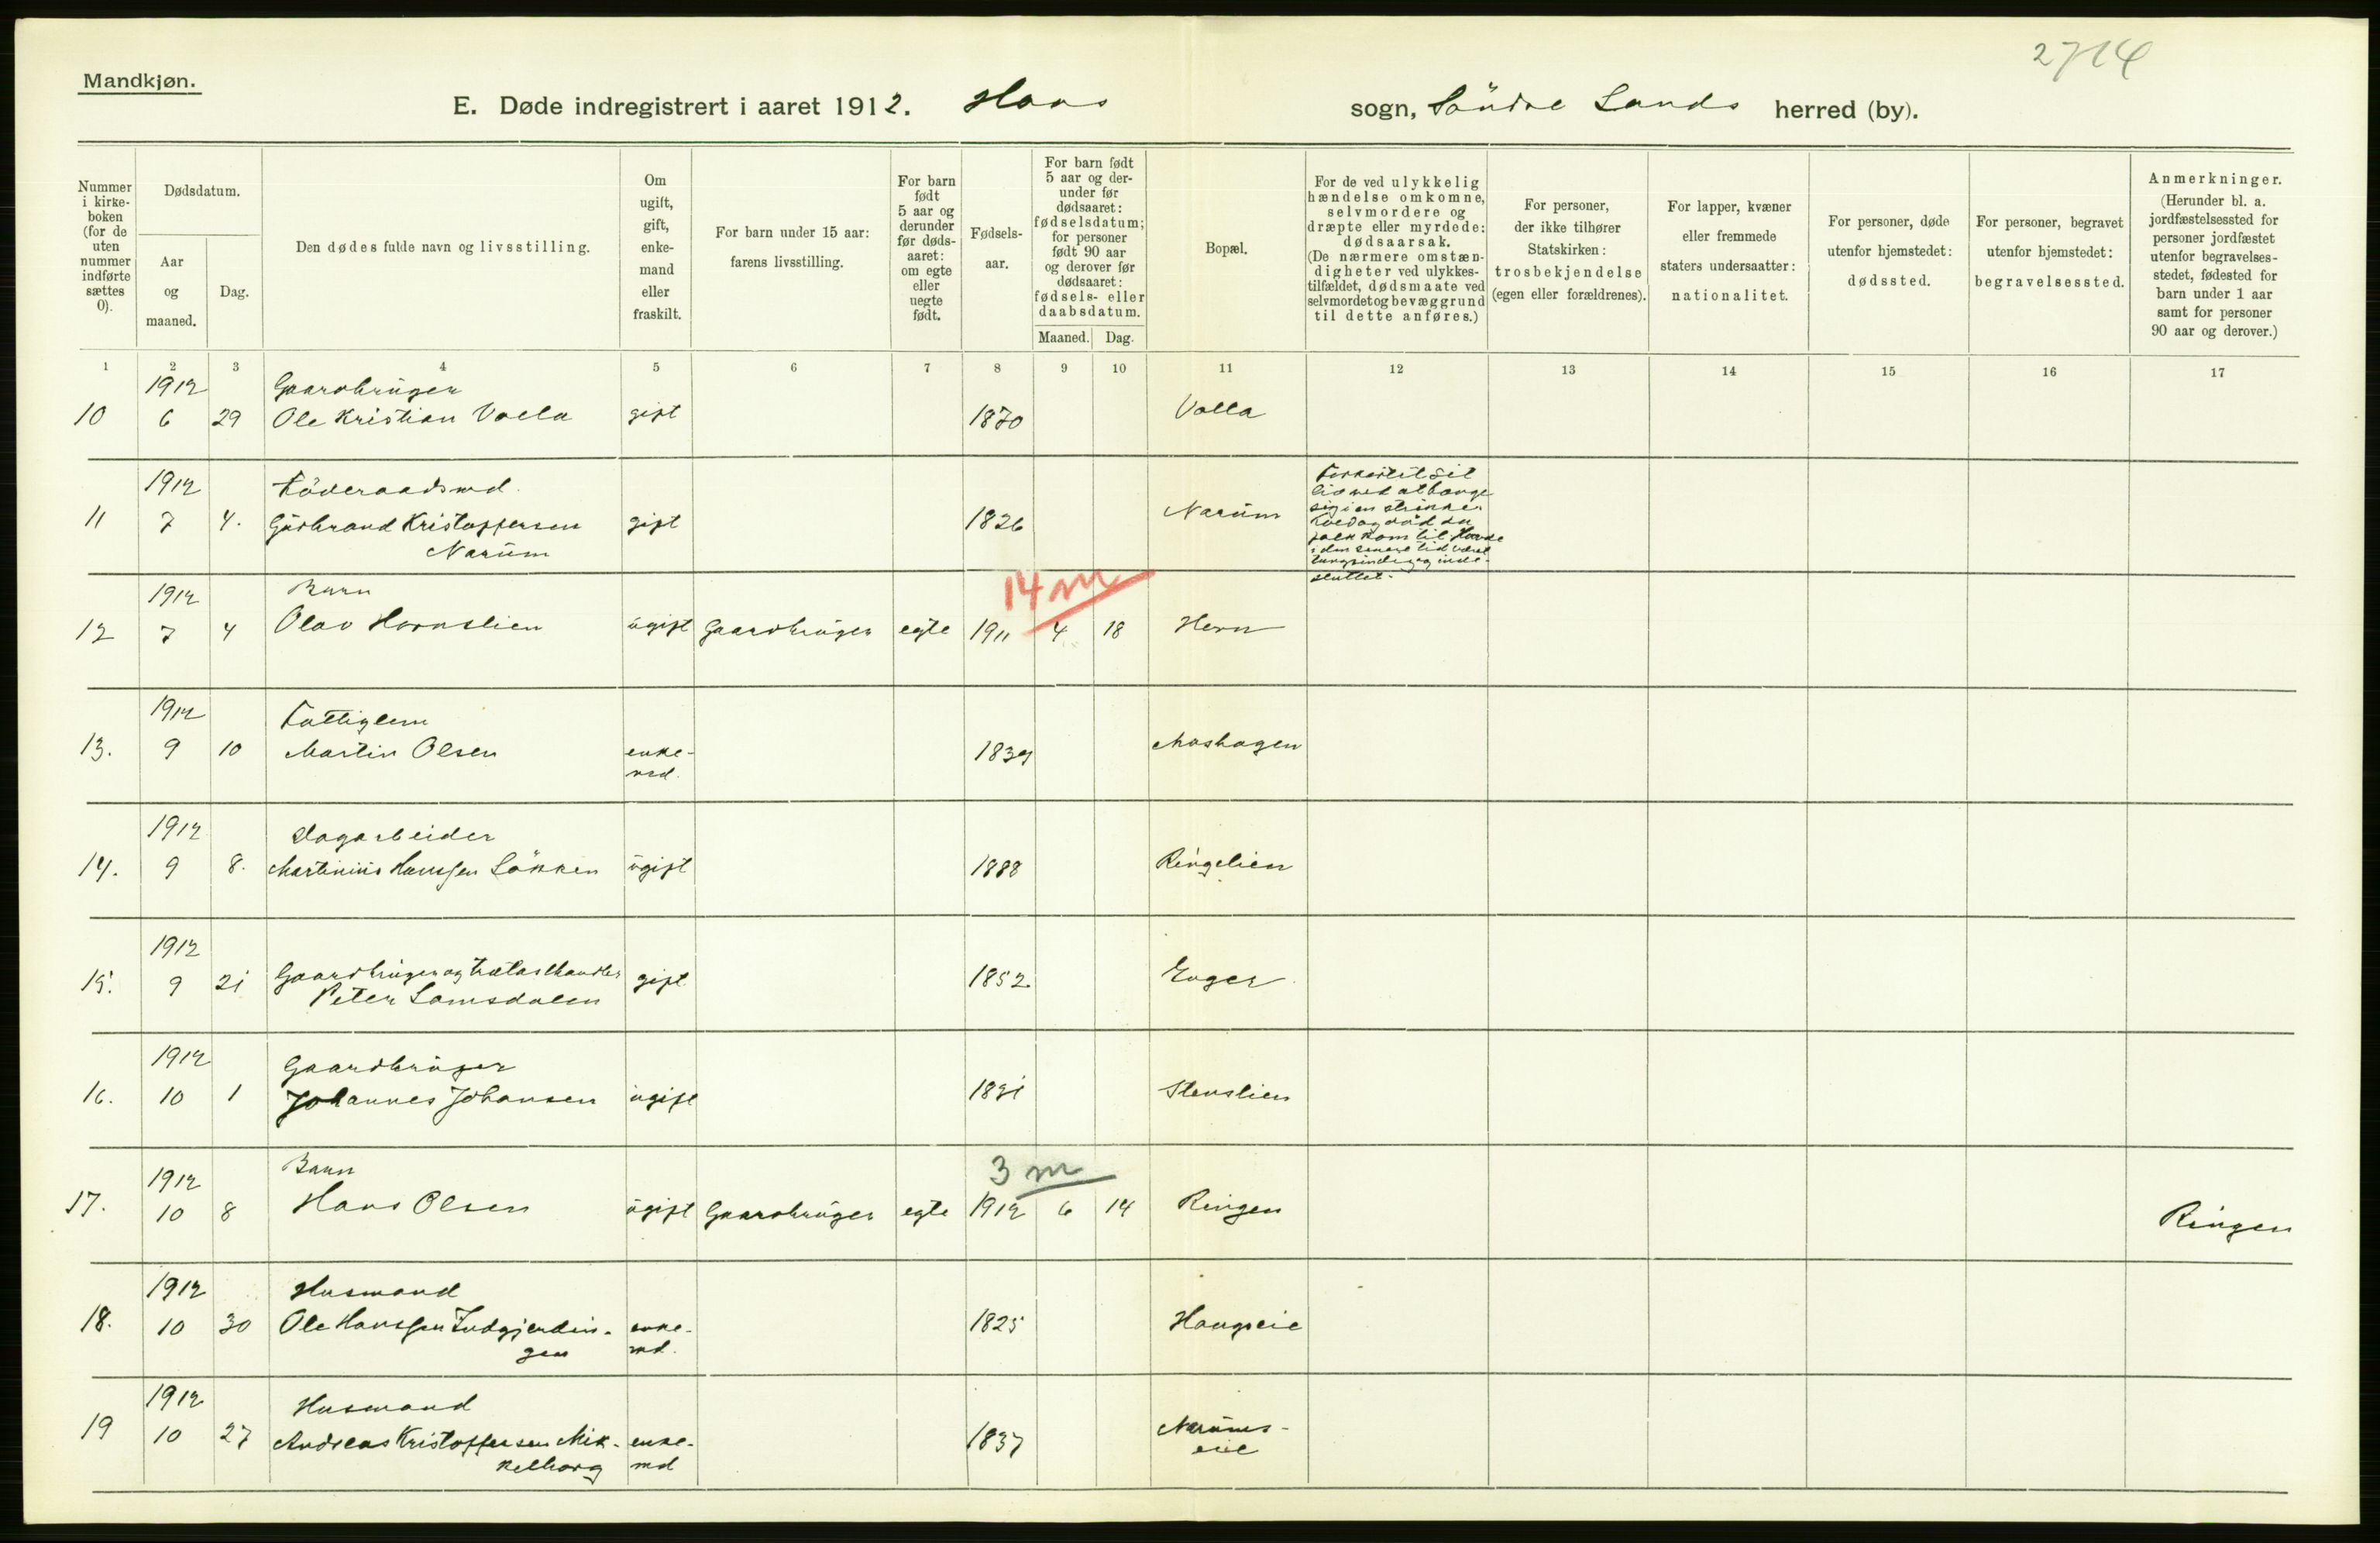 2714
Mandkjøn.
E. Døde indregistrert i aaret 1912. Hovs sogn, Söndre Lands herred (by).
Nummer i kirke-boken (for de uten nummer indførte sættes 0).
Dødsdatum.
Aar og maaned.
Dag.
Den dødes fulde navn og livsstilling.
Om ugift, gift, enke-mand eller fraskilt.
For barn under 15 aar: farens livsstilling.
For barn født 5 aar og derunder før døds-aaret: om egte eller uegte født.
Fødsels-aar.
For barn født 5 aar og der-under før dødsaaret: fødselsdatum; for personer født 90 aar og derover før dødsaaret: fødsels- eller daabsdatum.
Maaned. Dag.
Bopæl.
For de ved ulykkelig hændelse omkomne, selvmordere og dræpte eller myrdede: dødsaarsak. (De nærmere omstæn-digheter ved ulykkes-tilfældet, dødsmaate ved selvmordet og bevæggrund til dette anføres.)
For personer, der ikke tilhører Statskirken: trosbekjendelse (egen eller forældrenes).
For lapper, kvæner eller fremmede staters undersaatter: nationalitet.
For personer, døde utenfor hjemstedet: dødssted.
For personer, begravet utenfor hjemstedet: begravelsessted.
Anmerkninger. (Herunder bl. a. jordfæstelsessted for personer jordfæstet utenfor begravelses-stedet, fødested for barn under 1 aar samt for personer 90 aar og derover.)
1 2 3 4 5 6 7 8 9 10 11 12 13 14 15 16 17
1912 Gaardbruger
10 6 29 Ole Kristian Valla gift 1870 Valla
1912 Föderaadsmd.
11 7 4. Gudbrand Kristoffersen gift 1826 Narum
Narum
Forkortet sit
liv ved at hænge
sig i en strikke.
folk kom til. Havde
i den senere tid været
tungsindig og inde-
sluttet.
14 m
1912 Barn
12 7 4 Olav Hornslien ugift Gaardbruger egte 1911 4 18 Hern
1912 Fattiglem
13. 9 10 Martin Olsen enke- 1839 Moshagen
md.
1912 Dagarbeider
14. 9 8. Martinius Hanssen Lökken ugift 1888 Ringelien
1912
15. 9 21 Gaardbruger og trælasthandler gift 1852 Enger
Peter Lomsdalen
1912 Gaardbruger
16. 10 1 Johannes Johansen ugift 1831 Stenslien
3 m
1912 Barn
17. 10 8 Hans Olsen ugift Gaardbruger egte 1912 6 14 Ringen Ringen
1912 Husmand
18. 10 30 Ole Hanssen Indgjerdin- enke- 1825 Haugseie
gen md.
1912 Husmand
19 10 27 Andreas Kristoffersen Mik- enke- 1837 Narums-
kelborg md eie